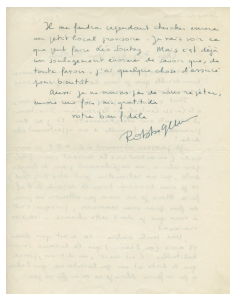 Il me faudra cependant chercher encore
un petit local provisoire. Je vais voir ce
que peut faire Léo Sontag. Mais c'est déjà
un soulagement de savoir que, de
toute façon, j'ai quelque chose d'assuré
pour bientôt.
Aussi je ne saurais que vous répéter,
encore une fois, ma gratitude.
votre bien fidèle